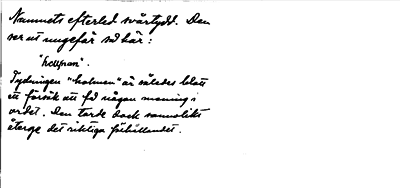 Namnets efterled svårtydd. Den
ser ut ungefär så här:
"hollpan".
Tydningen "holmen" är således blott
ett försök att få någon mening i
ordet. Den torde dock sannolikt
återge det riktiga förhållandet.